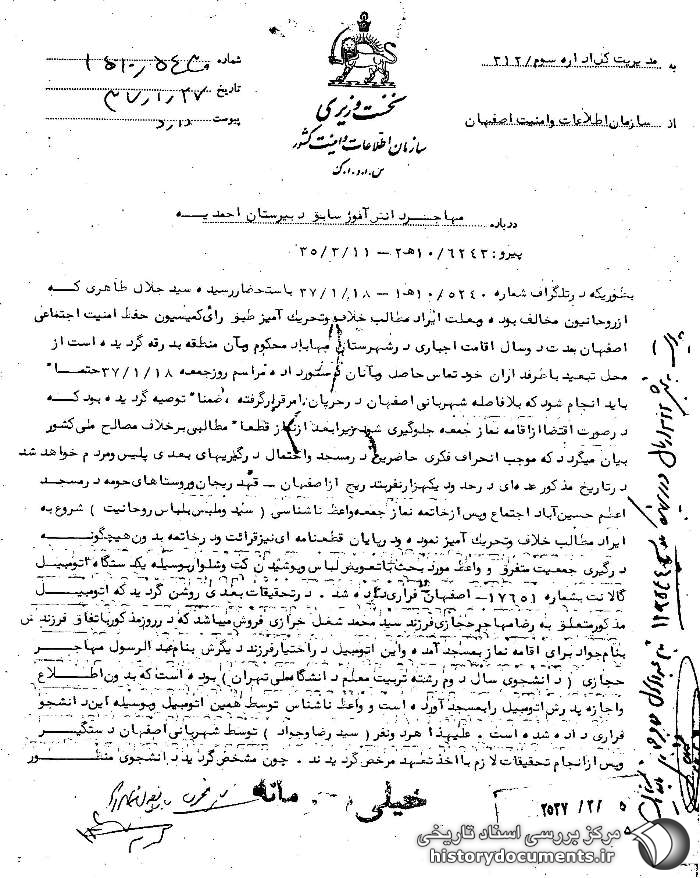 نخست وزیری
سازمان اطلاعات و امنیت کشور
س.ا.و.ا.ک
به مدیریت کل اداره سوم /۳۱۲
از سازمان اطلاعات و امنیت اصفهان
شماره
تاریخ ۳۷/۱/۲۷
پیوست دارد
درباره مهاجر دانش آموز سابق دبیرستان احمدیه
پیرو: ۱۰/۶۲۴۳هـ۲ – ۳۵/۳/۱۱
بطوریکه در تلگراف شماره ۱۰/۵۲۴۰هـ۱ – ۳۷/۱/۱۸ باستحضار رسیده سید جلال طاهری که
از روحانیون مخالف بوده و بعلت ایراد مطالب خلاف و تحریک آمیز طبق رای کمیسیون حفظ امنیت اجتماعی
اصفهان بمدت دو سال اقامت اجباری در شهرستان مهاباد محکوم و بآن منطقه بدرقه گردیده است از
محل تبعید با طرفداران خود تماس حاصل و بآنان دستور داده مراسم روز جمعه ۳۷/۱/۱۸ حتما"
باید انجام شود که بلافاصله شهربانی اصفهان در جریان امر قرار گرفته ، ضمنا" توصیه گردیده بود که
در صورت اقتضا از اقامه نماز جمعه جلوگیری شود زیرا بعد از نماز قطعا" مطالبی برخلاف مصالح ملی کشور
بیان میگردد که موجب انحراف فکری حاضرین در مسجد و احتمال درگیریهای بعدی پلیس و مردم خواهد شد
در تاریخ مذکور عده ای در حدود یکهزار نفر بتدریج از اصفهان – قهدریجان و روستاهای حومه در مسجد
اعظم حسین آباد اجتماع و پس از خاتمه نماز جمعه واعظ ناشناسی ( سید و ملبس بلباس روحانیت ) شروع به
ایراد مطالب خلاف و تحریک آمیز نموده و در پایان قطعنامه ای نیز قرائت و در خاتمه بدون هیچگونه
درگیری جمعیت متفرق و واعظ مورد بحث با تعویض لباس و پوشیدن کت و شلوار بوسیله یکدستگاه اتومبیل
گالانت بشماره ۱۷۶۵۱– اصفهان فراری داده شد . در تحقیقات بعدی روشن گردید که اتومبیل
مذکور متعلق به رضا مهاجر حجازی فرزند سید محمد شغل خرازی فروش میباشد که در روز مذکور باتفاق فرزندش
بنام جواد برای اقامه نماز بمسجد آمده و این اتومبیل را در اختیار فرزند دیگرش بنام عبدالرسول مهاجر
حجازی ( دانشجوی سال دوم رشته تربیت معلم دانشگاه ملی تهران ) بوده است که بدون اطلاع
و اجازه پدرش اتومبیل را بمسجد آورده است و واعظ ناشناس توسط همین اتومبیل و بوسیله این دانشجو
فراری داده شده است . علیهذا هر دو نفر ( سید رضا و جواد ) توسط شهربانی اصفهان دستگیر
و پس از انجام تحقیقات لازم با اخذ تعهد مرخص گردیدند . چون مشخص گردید دانشجوی منظور
خیلی محرمانه
۲۵۳۷ /۲/ ۵
مرکز بررسی اسناد تاریخی
historydocuments.ir